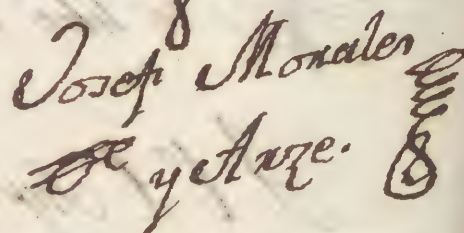 Josef Morales
y Arze.